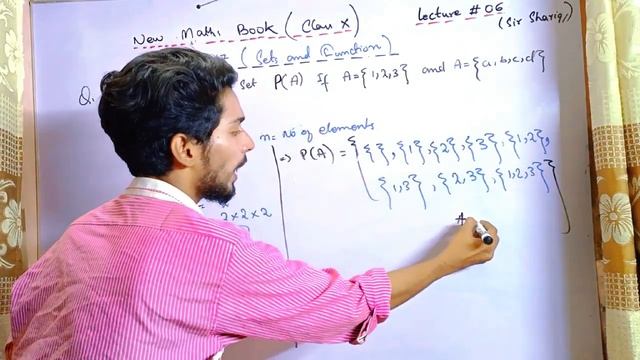 New Maths Book (Class X) Lecture # 06
(Sir Shariq)
(Sets and Function)
Q. set P(A) If A={1,2,3} and A={a,b,c,d}
n= No of elements
⇒ P(A) = { { }, {1}, {2}, {3}, {1,2},
{1,3}, {2,3}, {1,2,3} }
=
2×2×2
A